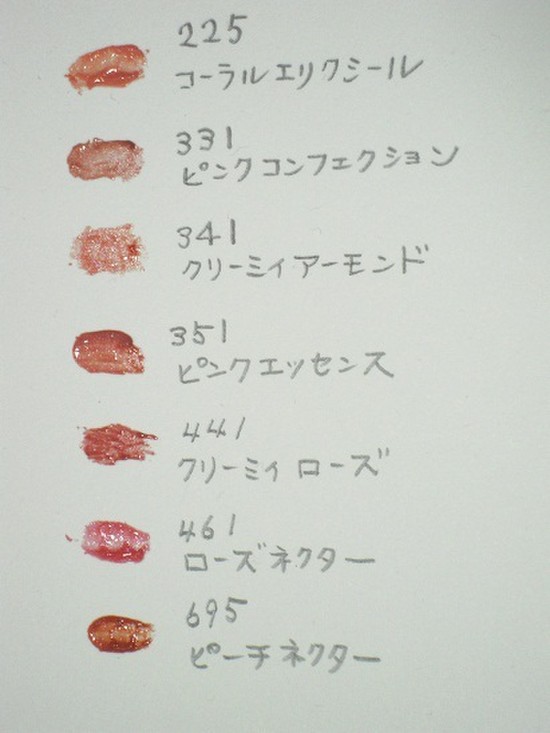 225
コーラルエリクシール
331
ピンクコンフェクション
341
クリーミィアーモンド
351
ピンクエッセンス
441
クリーミィローズ
461
ローズネクター
695
ピーチネクター